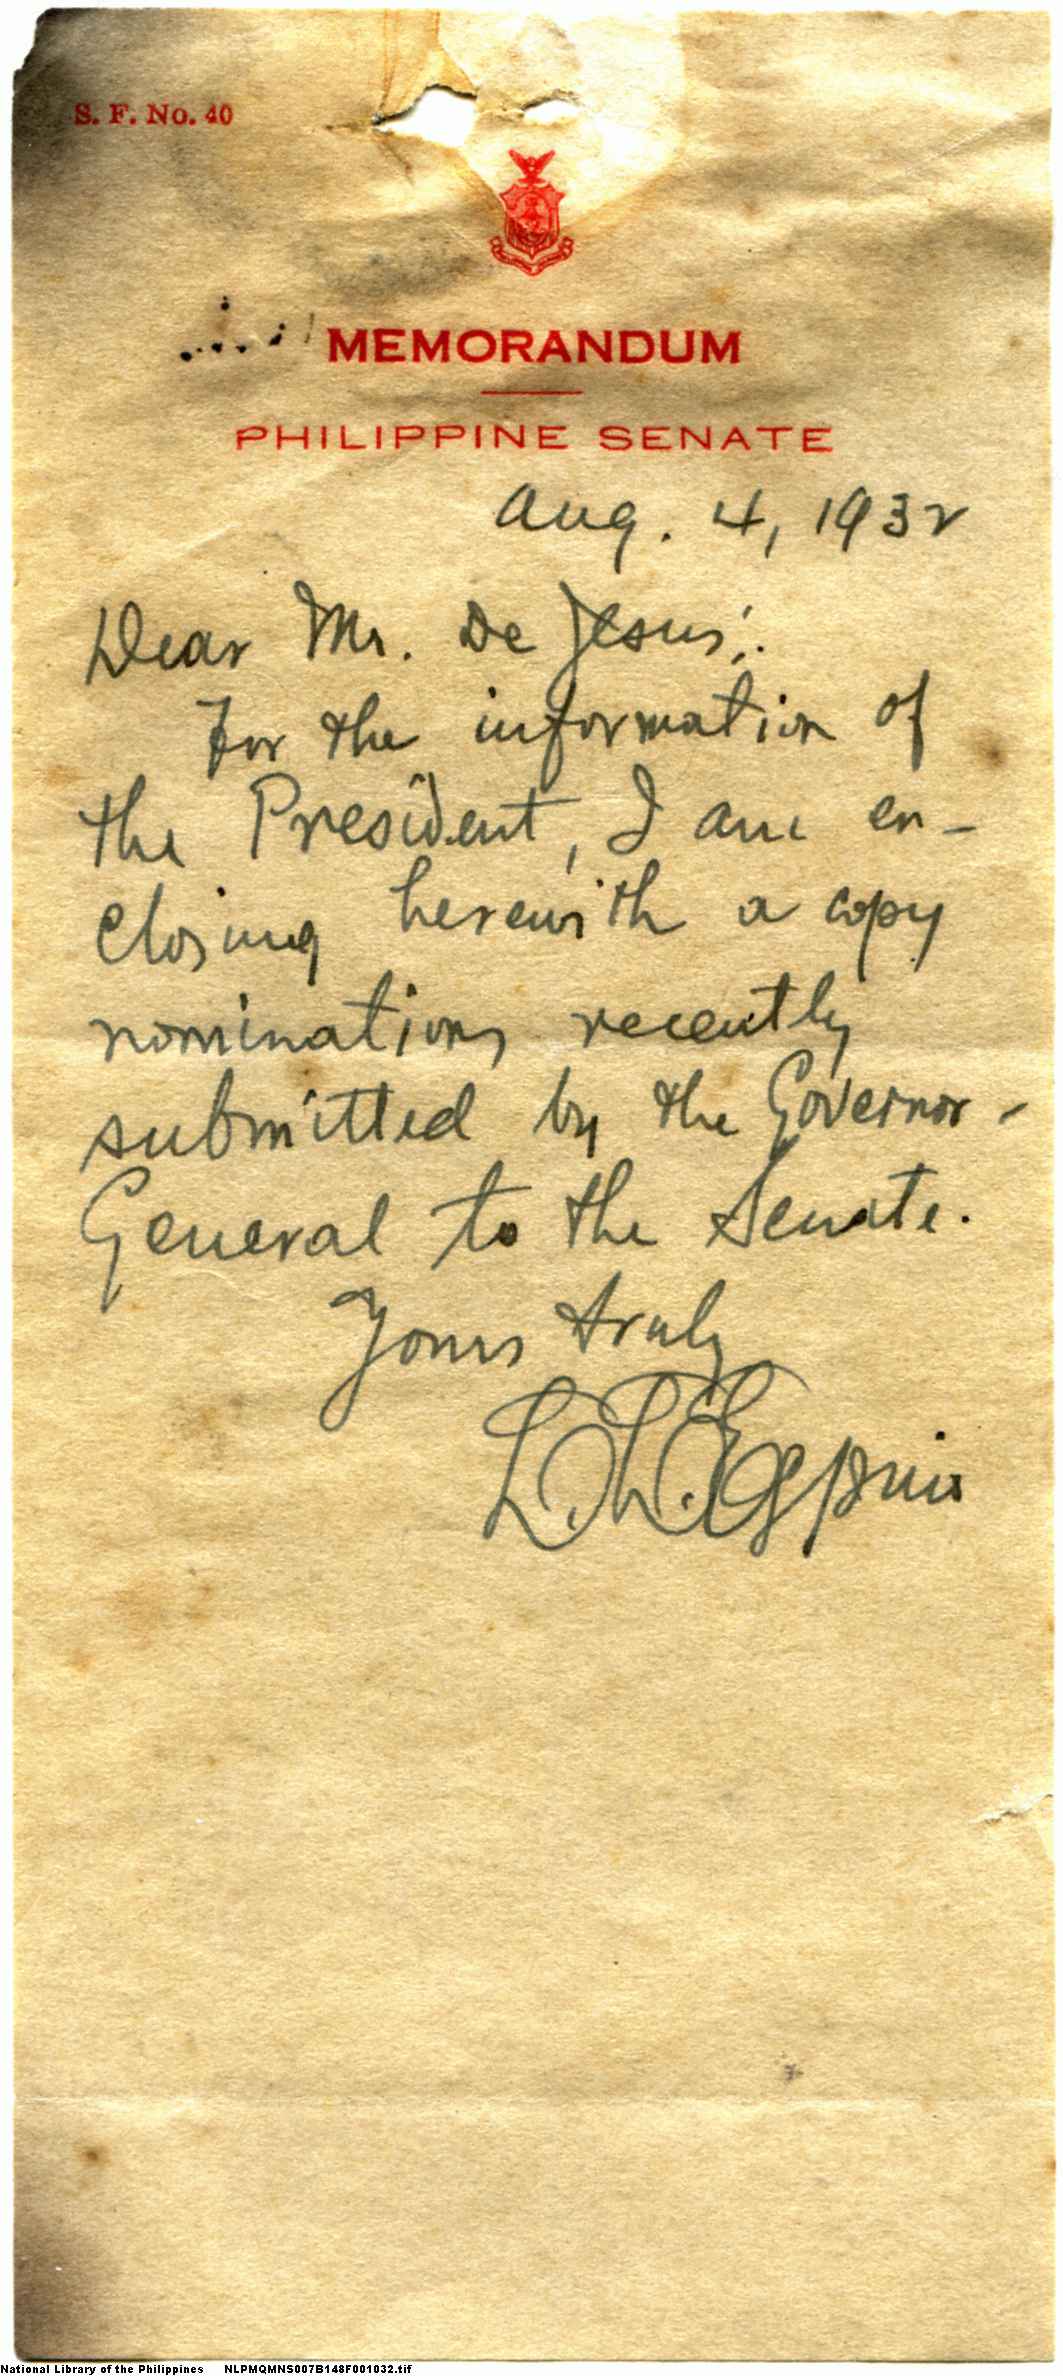 S. F. No. 40
MEMORANDUM
PHILIPPINE SENATE
Aug. 4, 1932
Dear Mr. De Jesus:
For the information of
the President, I am en-
closing herewith a copy
nominations recently
submitted by the Governor-
General to the Senate.
Yours truly
National Library of the Philippines NLPMQMNS007B148F001032.tif